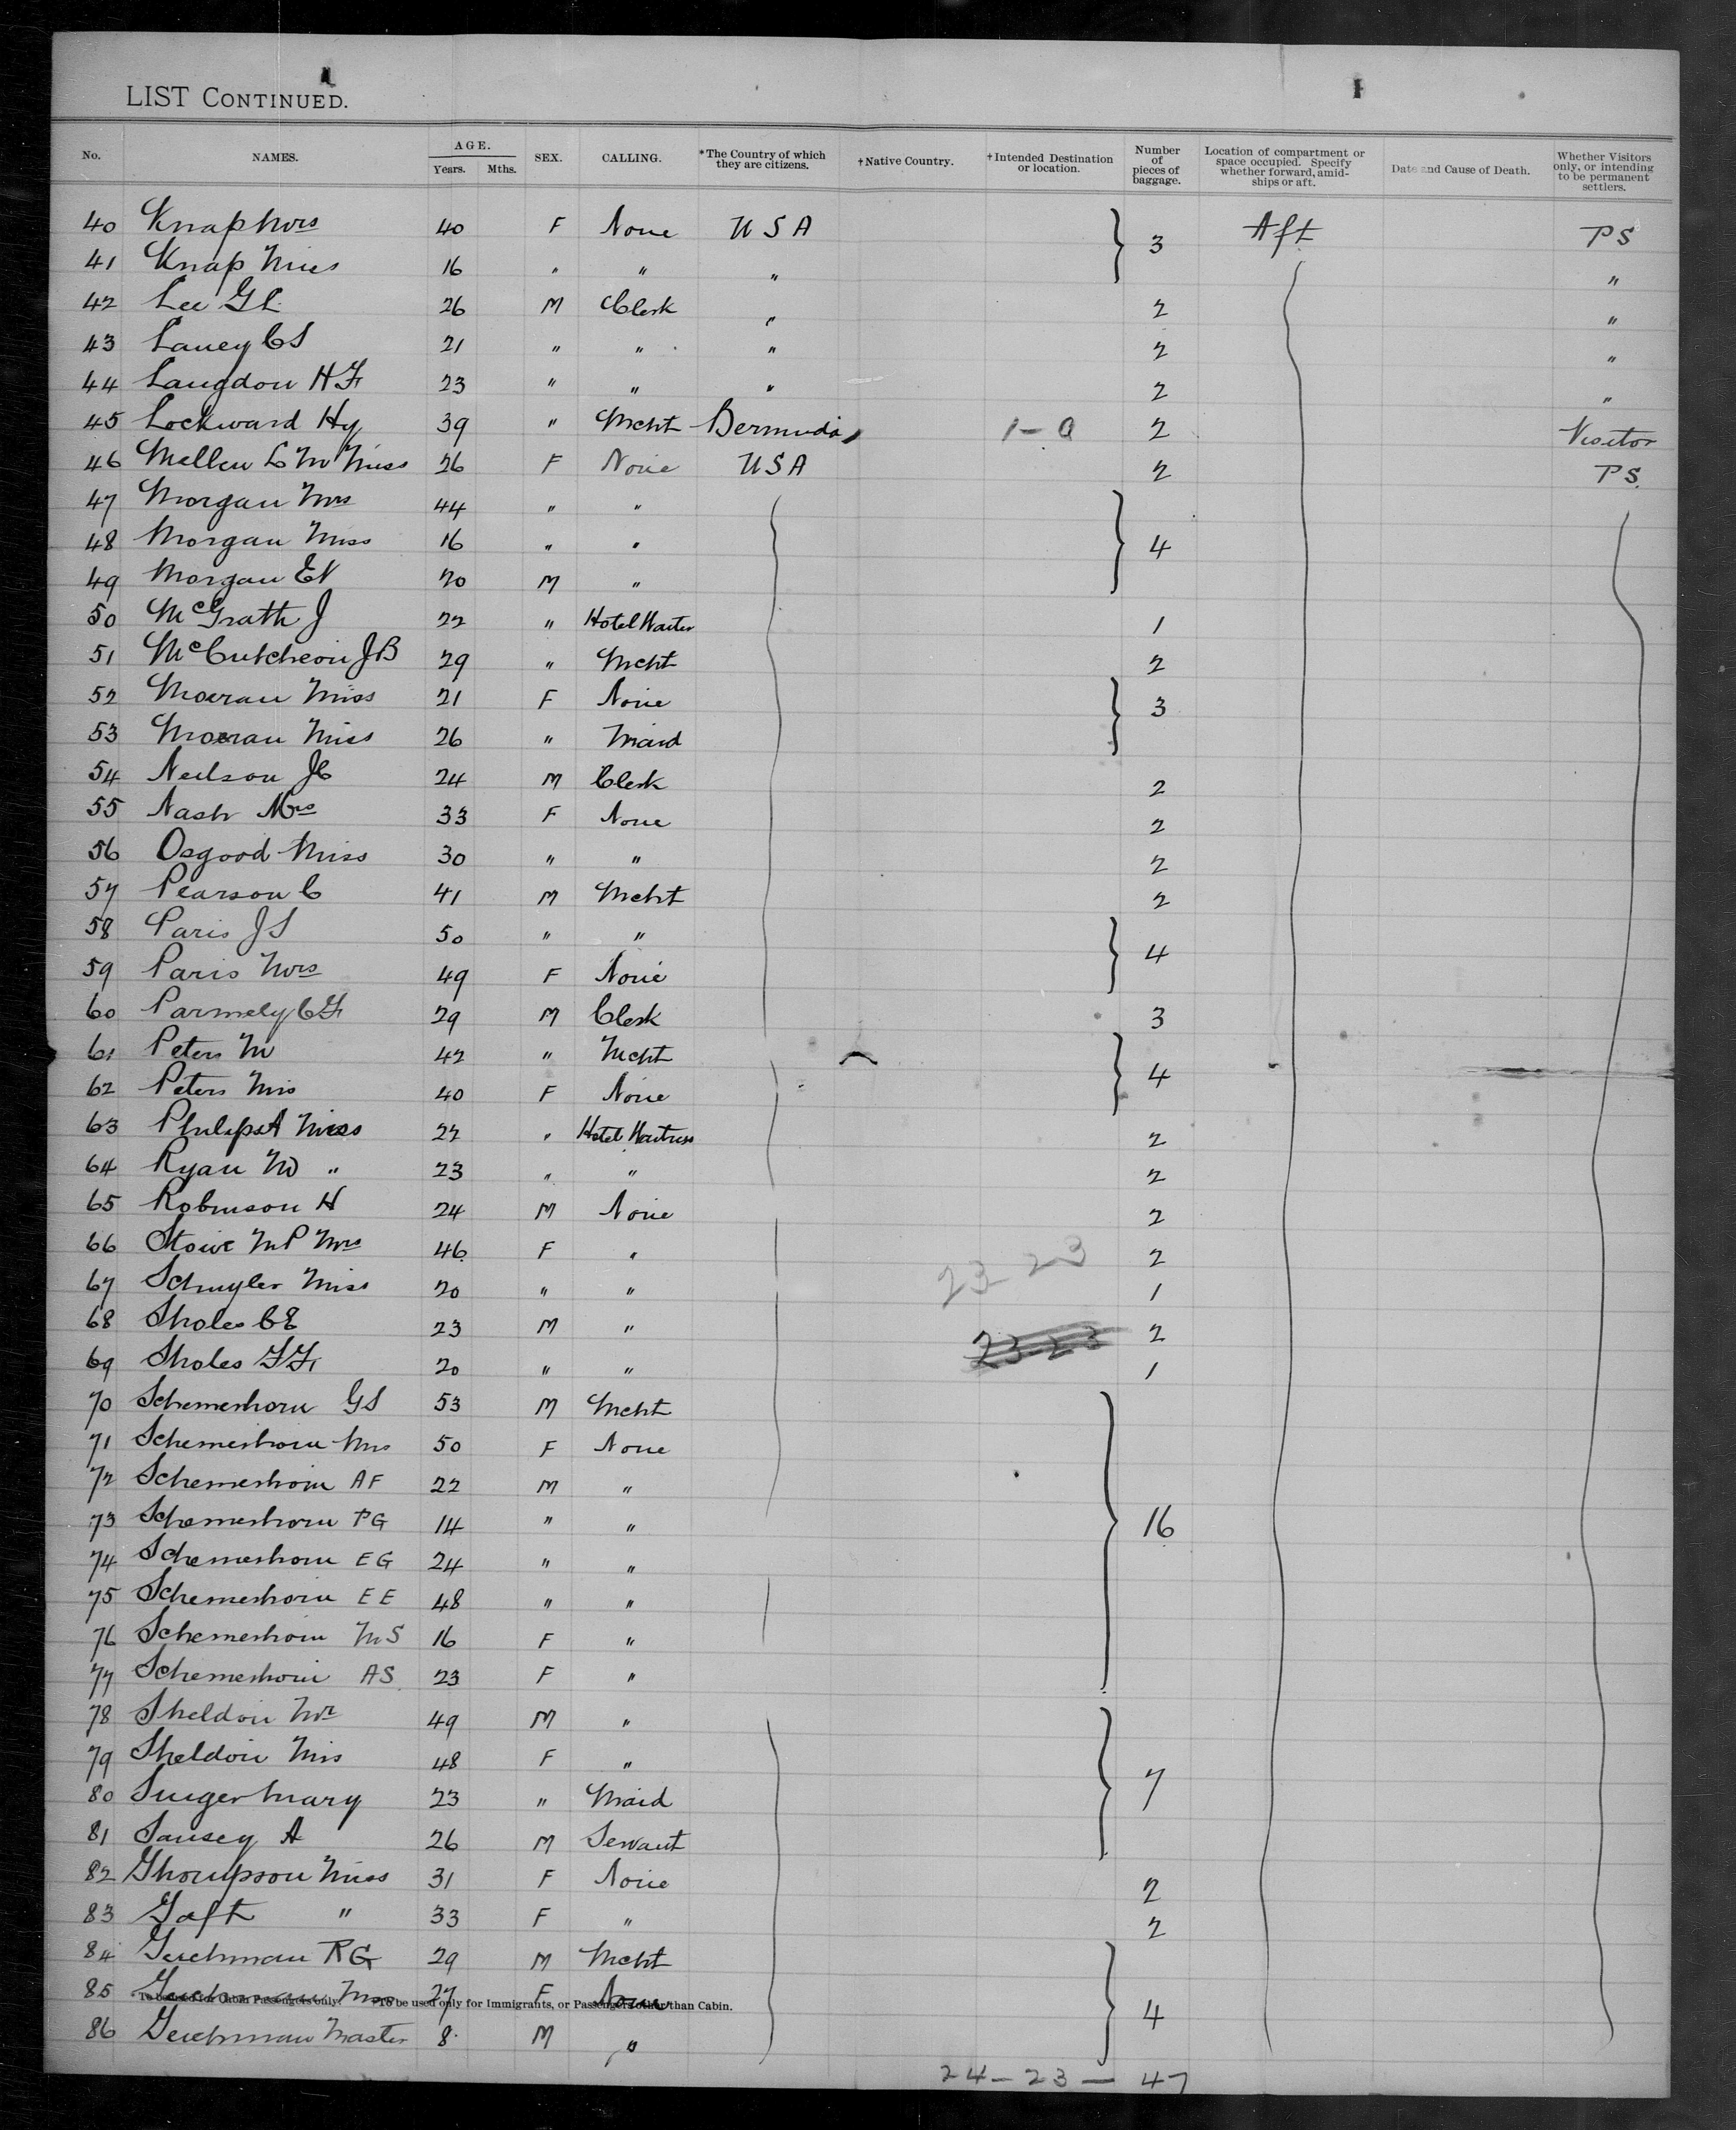 LIST CONTINUED.
No. NAMES. AGE. Years. Mths. SEX. CALLING. *The Country of which they are citizens. †Native Country. †Intended Destination or location. Number of pieces of baggage. Location of compartment or space occupied. Specify whether forward, amidships or aft. Date and Cause of Death. Whether Visitors only, or intending to be permanent settlers.
40 Knap Mrs 40 F None USA 3 Aft PS
41 Knap Miss 16 " " " "
42 Lee G L 26 M Clerk " 2 "
43 Laney C S 21 " " " 2 "
44 Langdon H F 23 " " " 2 "
45 Lockward Hy 39 " Mcht Bermuda 1-0 2 Visitor
46 Mellen L M Miss 26 F None USA 2 PS.
47 Morgan Mrs 44 " "
48 Morgan Miss 16 " " 4
49 Morgan EN 20 M "
50 McGrath J 22 " Hotel Waiter 1
51 McCutcheon J B 29 " Mcht 2
52 Moeran Miss 21 F None 3
53 Moeran Miss 26 " Maid
54 Neilson J C 24 M Clerk 2
55 Nash Mrs 33 F None 2
56 Osgood Miss 30 " " 2
57 Pearson C 41 M Mcht 2
58 Paris J S 50 " " 4
59 Paris Mrs 49 F None
60 Parmely C F 29 M Clerk 3
61 Peters M 42 " Mcht 4
62 Peters Mrs 40 F None
63 Philips A Miss 22 " Hotel Waitress 2
64 Ryan M " 23 " " 2
65 Robinson H 24 M None 2
66 Stowe M P Mrs 46 F " 2
23-23
67 Schuyler Miss 20 " " 1
68 Sholes C E 23 M " 2
23-23
69 Sholes F F 20 " " 1
70 Schemerhorn G S 53 M Mcht
71 Schemerhorn Mrs 50 F None
72 Schemerhorn A F 22 M "
73 Schemerhorn P G 14 " " 16
74 Schemerhorn E G 24 " "
75 Schemerhorn E E 48 " "
76 Schemerhorn M S 16 F "
77 Schemerhorn A S 23 F "
78 Sheldon Mr 49 M "
79 Sheldon Mrs 48 F " 7
80 Singer Mary 23 " Maid
81 Sansey A 26 M Servant
82 Thompson Miss 31 F None 2
83 Taft " 33 F " 2
84 Teichman R G 29 M Mcht
85 Teichman Mrs 27 F None 4
To be used for Cabin Passengers only. †To be used only for Immigrants, or Passengers other than Cabin.
86 Teichman Master 8 M "
24-23-47